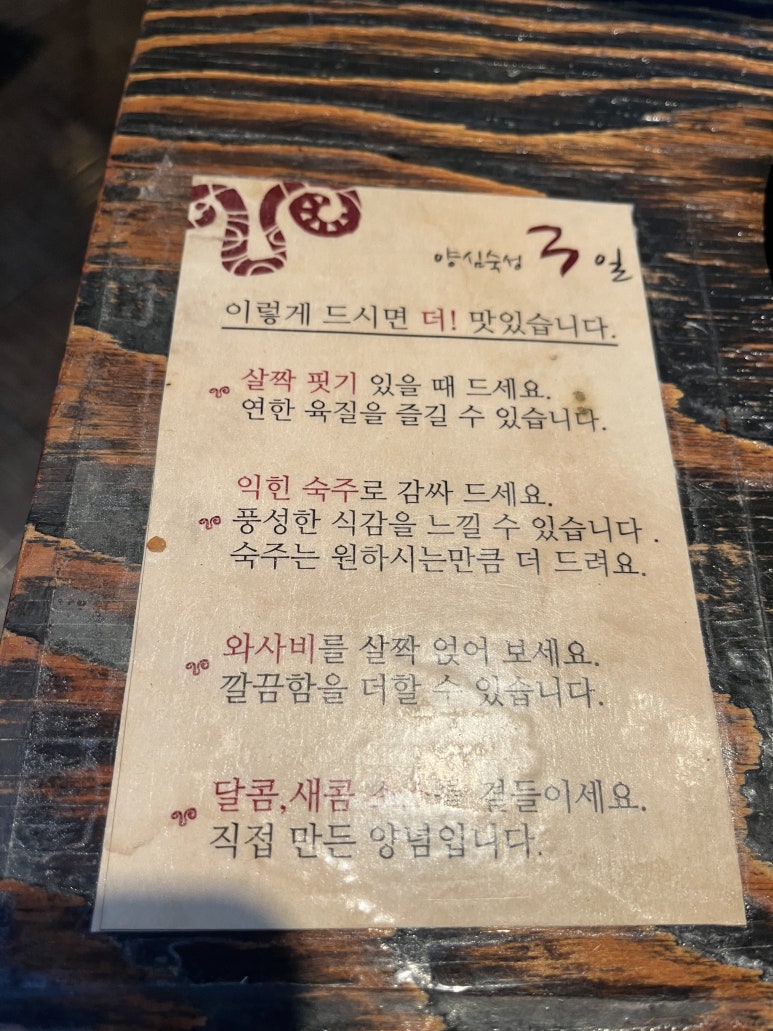 양심숙성 3일
이렇게 드시면 더! 맛있습니다.
살짝 핏기 있을 때 드세요.
연한 육질을 즐길 수 있습니다.
익힌 숙주로 감싸 드세요.
풍성한 식감을 느낄 수 있습니다 .
숙주는 원하시는만큼 더 드려요.
와사비를 살짝 얹어 보세요.
깔끔함을 더할 수 있습니다.
달콤,새콤 곁들이세요.
직접 만든 양념입니다.